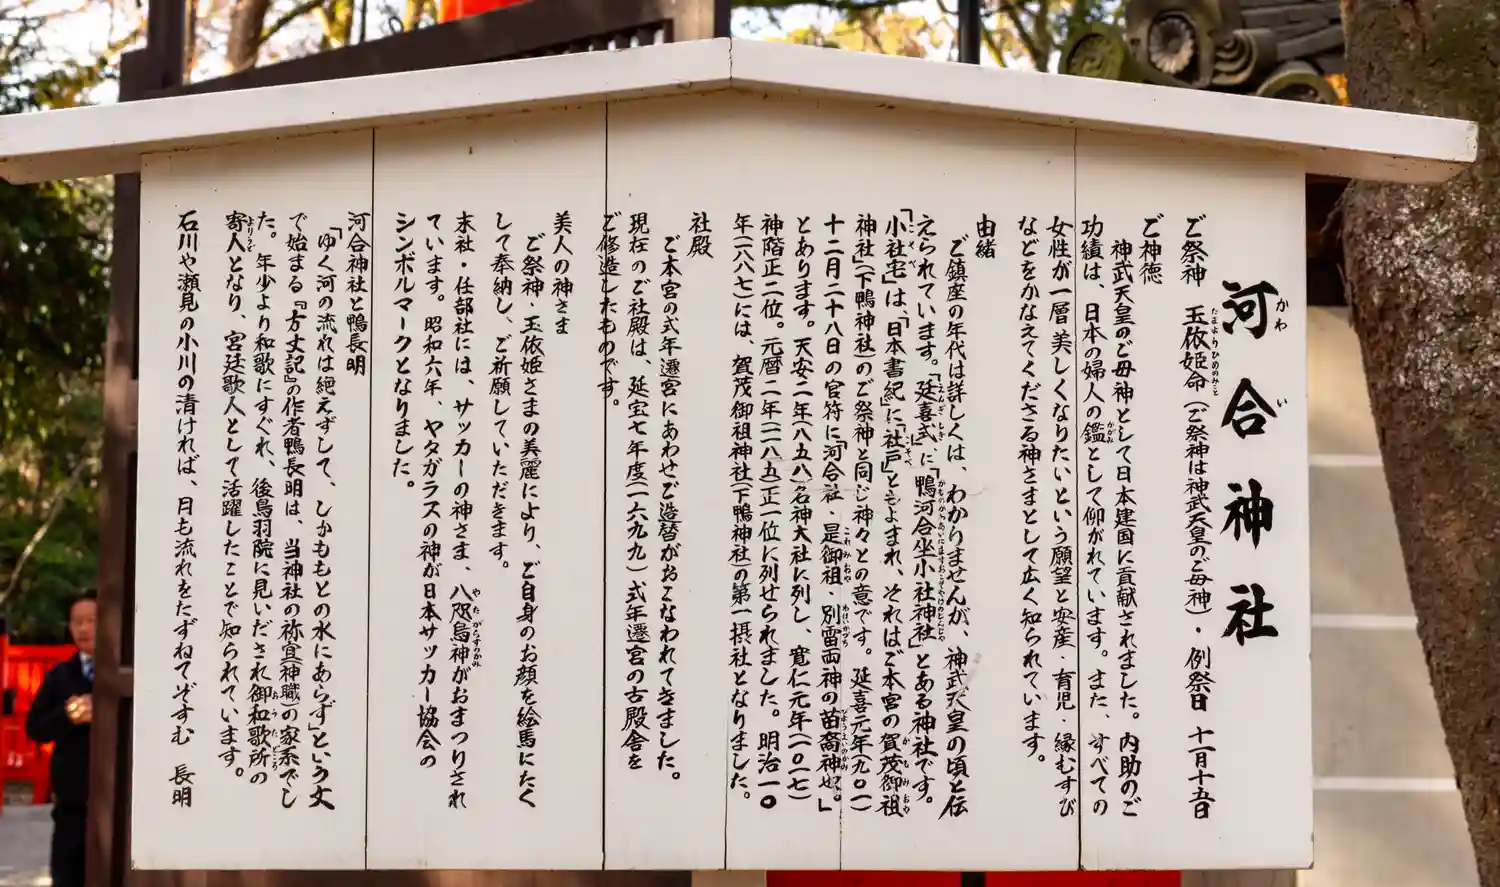 河合神社
ご祭神　玉依姫命（ご祭神は神武天皇のご母神）・例祭日　十一月十五日
ご神徳
神武天皇のご母神として日本建国に貢献されました。内助のご
功績は、日本の婦人の鑑として仰がれています。また、すべての
女性が一層美しくなりたいという願望と安産・育児・縁むすび
などをかなえてくださる神さまとして広く知られています。
由緒
ご鎮座の年代は詳しくは、わかりませんが、神武天皇の頃と伝
えられています。「延喜式」に「鴨河合坐小社宅神社」とある神社です。
「小社宅」は、「日本書紀」に「社戸」ともよまれ、それはご本宮の賀茂御祖
神社」（下鴨神社）のご祭神と同じ神々との意です。延喜元年（九〇一）
十二月二十八日の官符に「河合社・是御祖、別雷両神の苗裔神也。」
とあります。天安二年（八五八）名神大社に列し、寛仁元年（一〇一七）
神階正二位。元暦二年（一一八五）正一位に列せられました。明治一〇
年（一八八七）には、賀茂御祖神社（下鴨神社）の第一摂社となりました。
社殿
ご本宮の式年遷宮にあわせご造替がおこなわれてきました。
現在のご社殿は、延宝七年度（一六九九）式年遷宮の古殿舎を
ご修造したものです。
美人の神さま
ご祭神・玉依姫さまの美麗により、ご自身のお顔を絵馬にたく
して奉納し、ご祈願していただきます。
末社・任部社には、サッカーの神さま、八咫烏神がおまつりされ
ています。昭和六年、ヤタガラスの神が日本サッカー協会の
シンボルマークとなりました。
河合神社と鴨長明
「ゆく河の流れは絶えずして、しかももとの水にあらず」という文
で始まる『方丈記』の作者鴨長明は、当神社の祢宜（神職）の家系でし
た。年少より和歌にすぐれ、後鳥羽院に見いだされ御和歌所の
寄人となり、宮廷歌人として活躍したことで知られています。
石川や瀬見の小川の清ければ、月も流れをたずねてぞすむ　長明